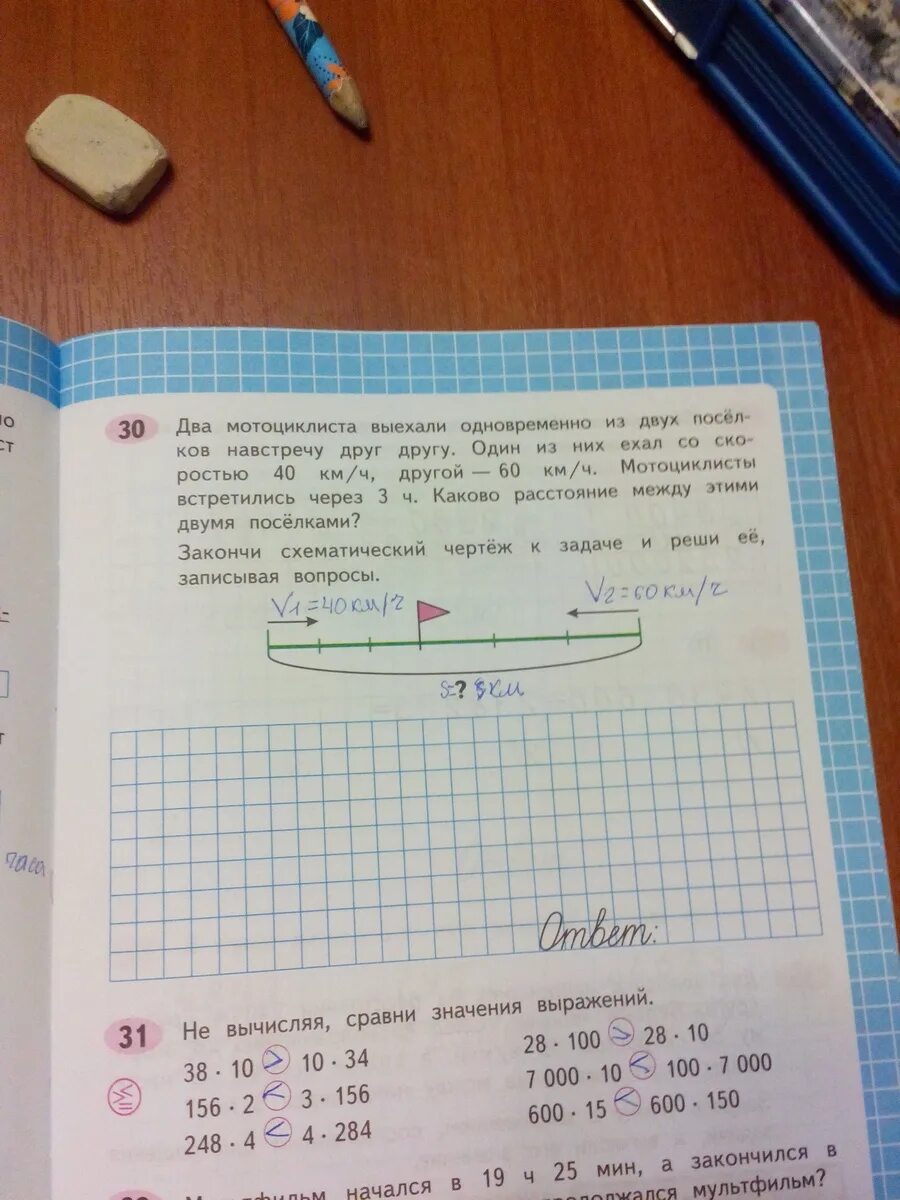 ст
30 Два мотоциклиста выехали одновременно из двух посёл-
ков навстречу друг другу. Один из них ехал со ско-
ростью 40 км/ч, другой — 60 км/ч. Мотоциклисты
встретились через 3 ч. Каково расстояние между этими
двумя посёлками?
Закончи схематический чертёж к задаче и реши её,
записывая вопросы.
V1=40км/ч V2=60км/ч
S=? км
часа
Ответ:
31 Не вычисляя, сравни значения выражений.
38 · 10 > 10 · 34 28 · 100 > 28 · 10
156 · 2 < 3 · 156 7 000 · 10 < 100 · 7 000
248 · 4 < 4 · 284 600 · 15 < 600 · 150
Мультфильм начался в 19 ч 25 мин, а закончился в
продолжался мультфильм?